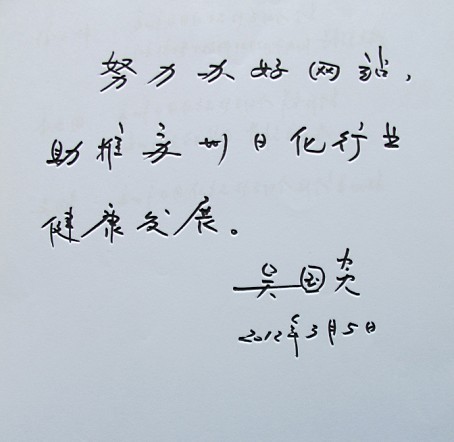 努力办好网站，
助推 州日化行业
健康发展。
吴国
2012年3月5日